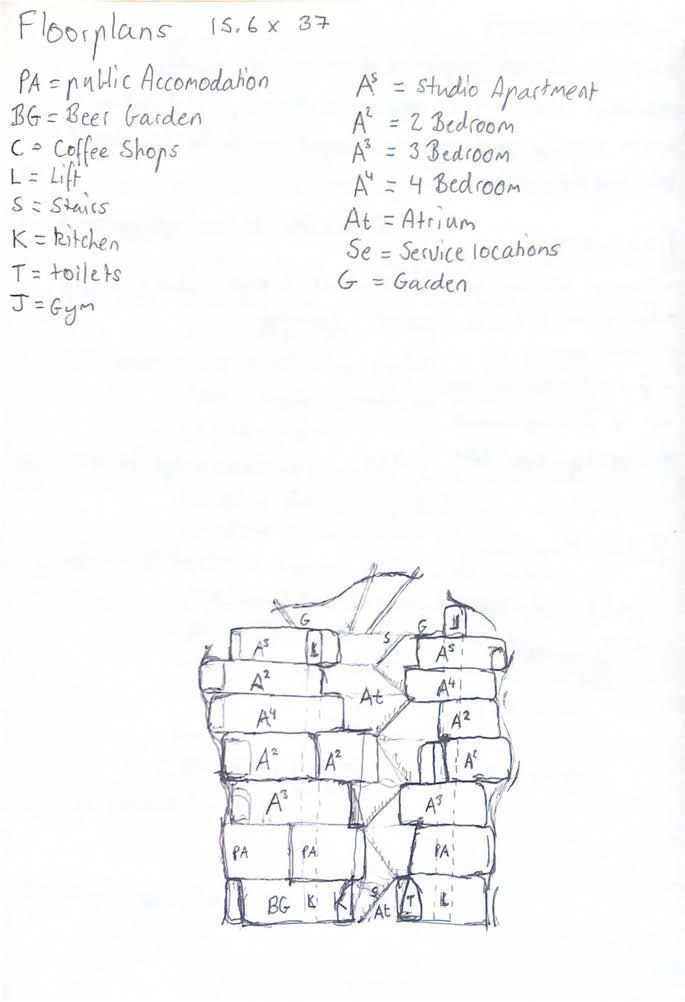 Floorplans 15.6 x 37
PA = public Accomodation
BG = Beer Garden
C = Coffee Shops
L = Lift
S = Stairs
K = kitchen
T = toilets
J = Gym
Aˢ = Studio Apartment
A² = 2 Bedroom
A³ = 3 Bedroom
A⁴ = 4 Bedroom
At = Atrium
Se = Service locations
G = Garden
G
S G
Aˢ Aˢ
A² At A⁴
A⁴ A²
A² A² A²
A³ A³
PA PA PA
BG K K S At T